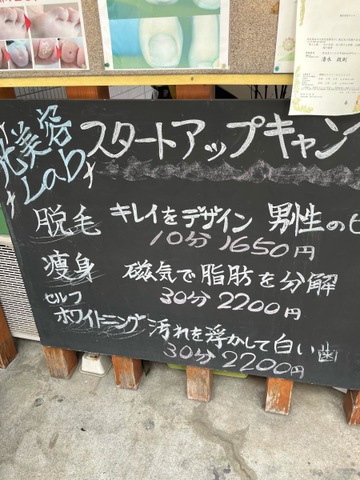 光美容
Lab
スタートアップキャン
脱毛 キレイをデザイン 男性の
10分 1650円
痩身 磁気で脂肪を分解
30分 2200円
セルフ
ホワイトニング 汚れを浮かして白い歯
30分 2200円